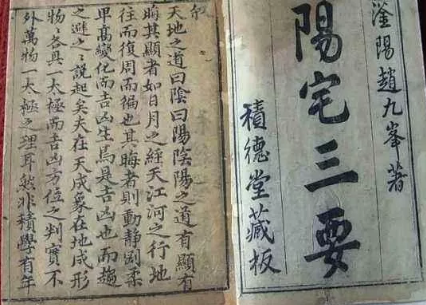 滏陽趙九峯著
陽宅三要
積德堂藏板
天地之道曰陰曰陽陰陽之道有顯有
晦其顯者如日月之經天江河之行地
往而復周而徧也其晦者則動静剛柔
卑高變化而吉凶生焉是吉凶也而趨
之避之〻說起矣夫在天成象在地成形
物〻各具一太極而吉凶方位之判實不
外萬物一太極之理耳然非積學有年